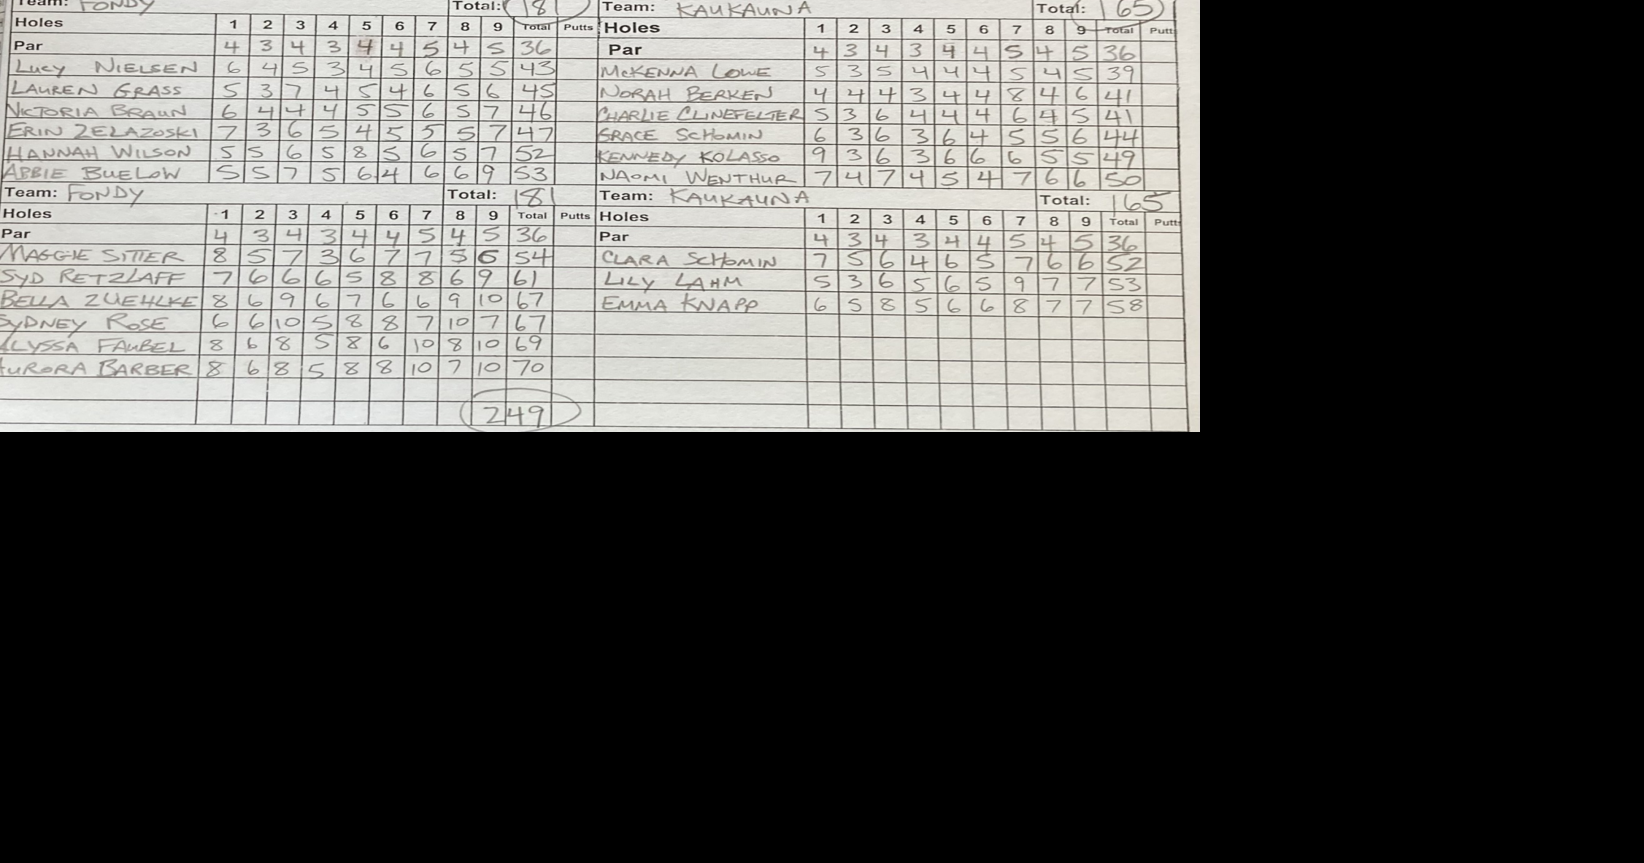 Team: FONDY Total: 181
Holes 1 2 3 4 5 6 7 8 9 Total Putts
Par 4 3 4 3 4 4 5 4 5 36
LUCY NIELSEN 6 4 5 3 4 5 6 5 5 43
LAUREN GRASS 5 3 7 4 5 4 6 5 6 45
VICTORIA BRAUN 6 4 4 4 5 5 6 5 7 46
ERIN ZELAZOSKI 7 3 6 5 4 5 5 5 7 47
HANNAH WILSON 5 5 6 5 8 5 6 5 7 52
ABBIE BUELOW 5 5 7 5 6 4 6 6 9 53
Team: FONDY Total: 181
Holes 1 2 3 4 5 6 7 8 9 Total Putts
Par 4 3 4 3 4 4 5 4 5 36
MAGGIE SITTER 8 5 7 3 6 7 7 5 6 54
SYD RETZLAFF 7 6 6 6 5 8 8 6 9 61
BELLA ZUEHLKE 8 6 9 6 7 6 6 9 10 67
SYDNEY ROSE 6 6 10 5 8 8 7 10 7 67
ALYSSA FAUBEL 8 6 8 5 8 6 10 8 10 69
AURORA BARBER 8 6 8 5 8 8 10 7 10 70
249
Team: KAUKAUNA Total: 165
Holes 1 2 3 4 5 6 7 8 9 Total Putts
Par 4 3 4 3 4 4 5 4 5 36
MCKENNA LOWE 5 3 5 4 4 4 5 4 5 39
NORAH BERKEN 4 4 4 3 4 4 8 4 6 41
CHARLIE CLINEFELTER 5 3 6 4 4 4 6 4 5 41
GRACE SCHOMIN 6 3 6 3 6 4 5 5 6 44
KENNEDY KOLASSO 9 3 6 3 6 6 6 5 5 49
NAOMI WENTHUR 7 4 7 4 5 4 7 6 6 50
Team: KAUKAUNA Total: 165
Holes 1 2 3 4 5 6 7 8 9 Total Putts
Par 4 3 4 3 4 4 5 4 5 36
CLARA SCHOMIN 7 5 6 4 6 5 7 6 6 52
LILY LAHM 5 3 6 5 6 5 9 7 7 53
EMMA KNAPP 6 5 8 5 6 6 8 7 7 58